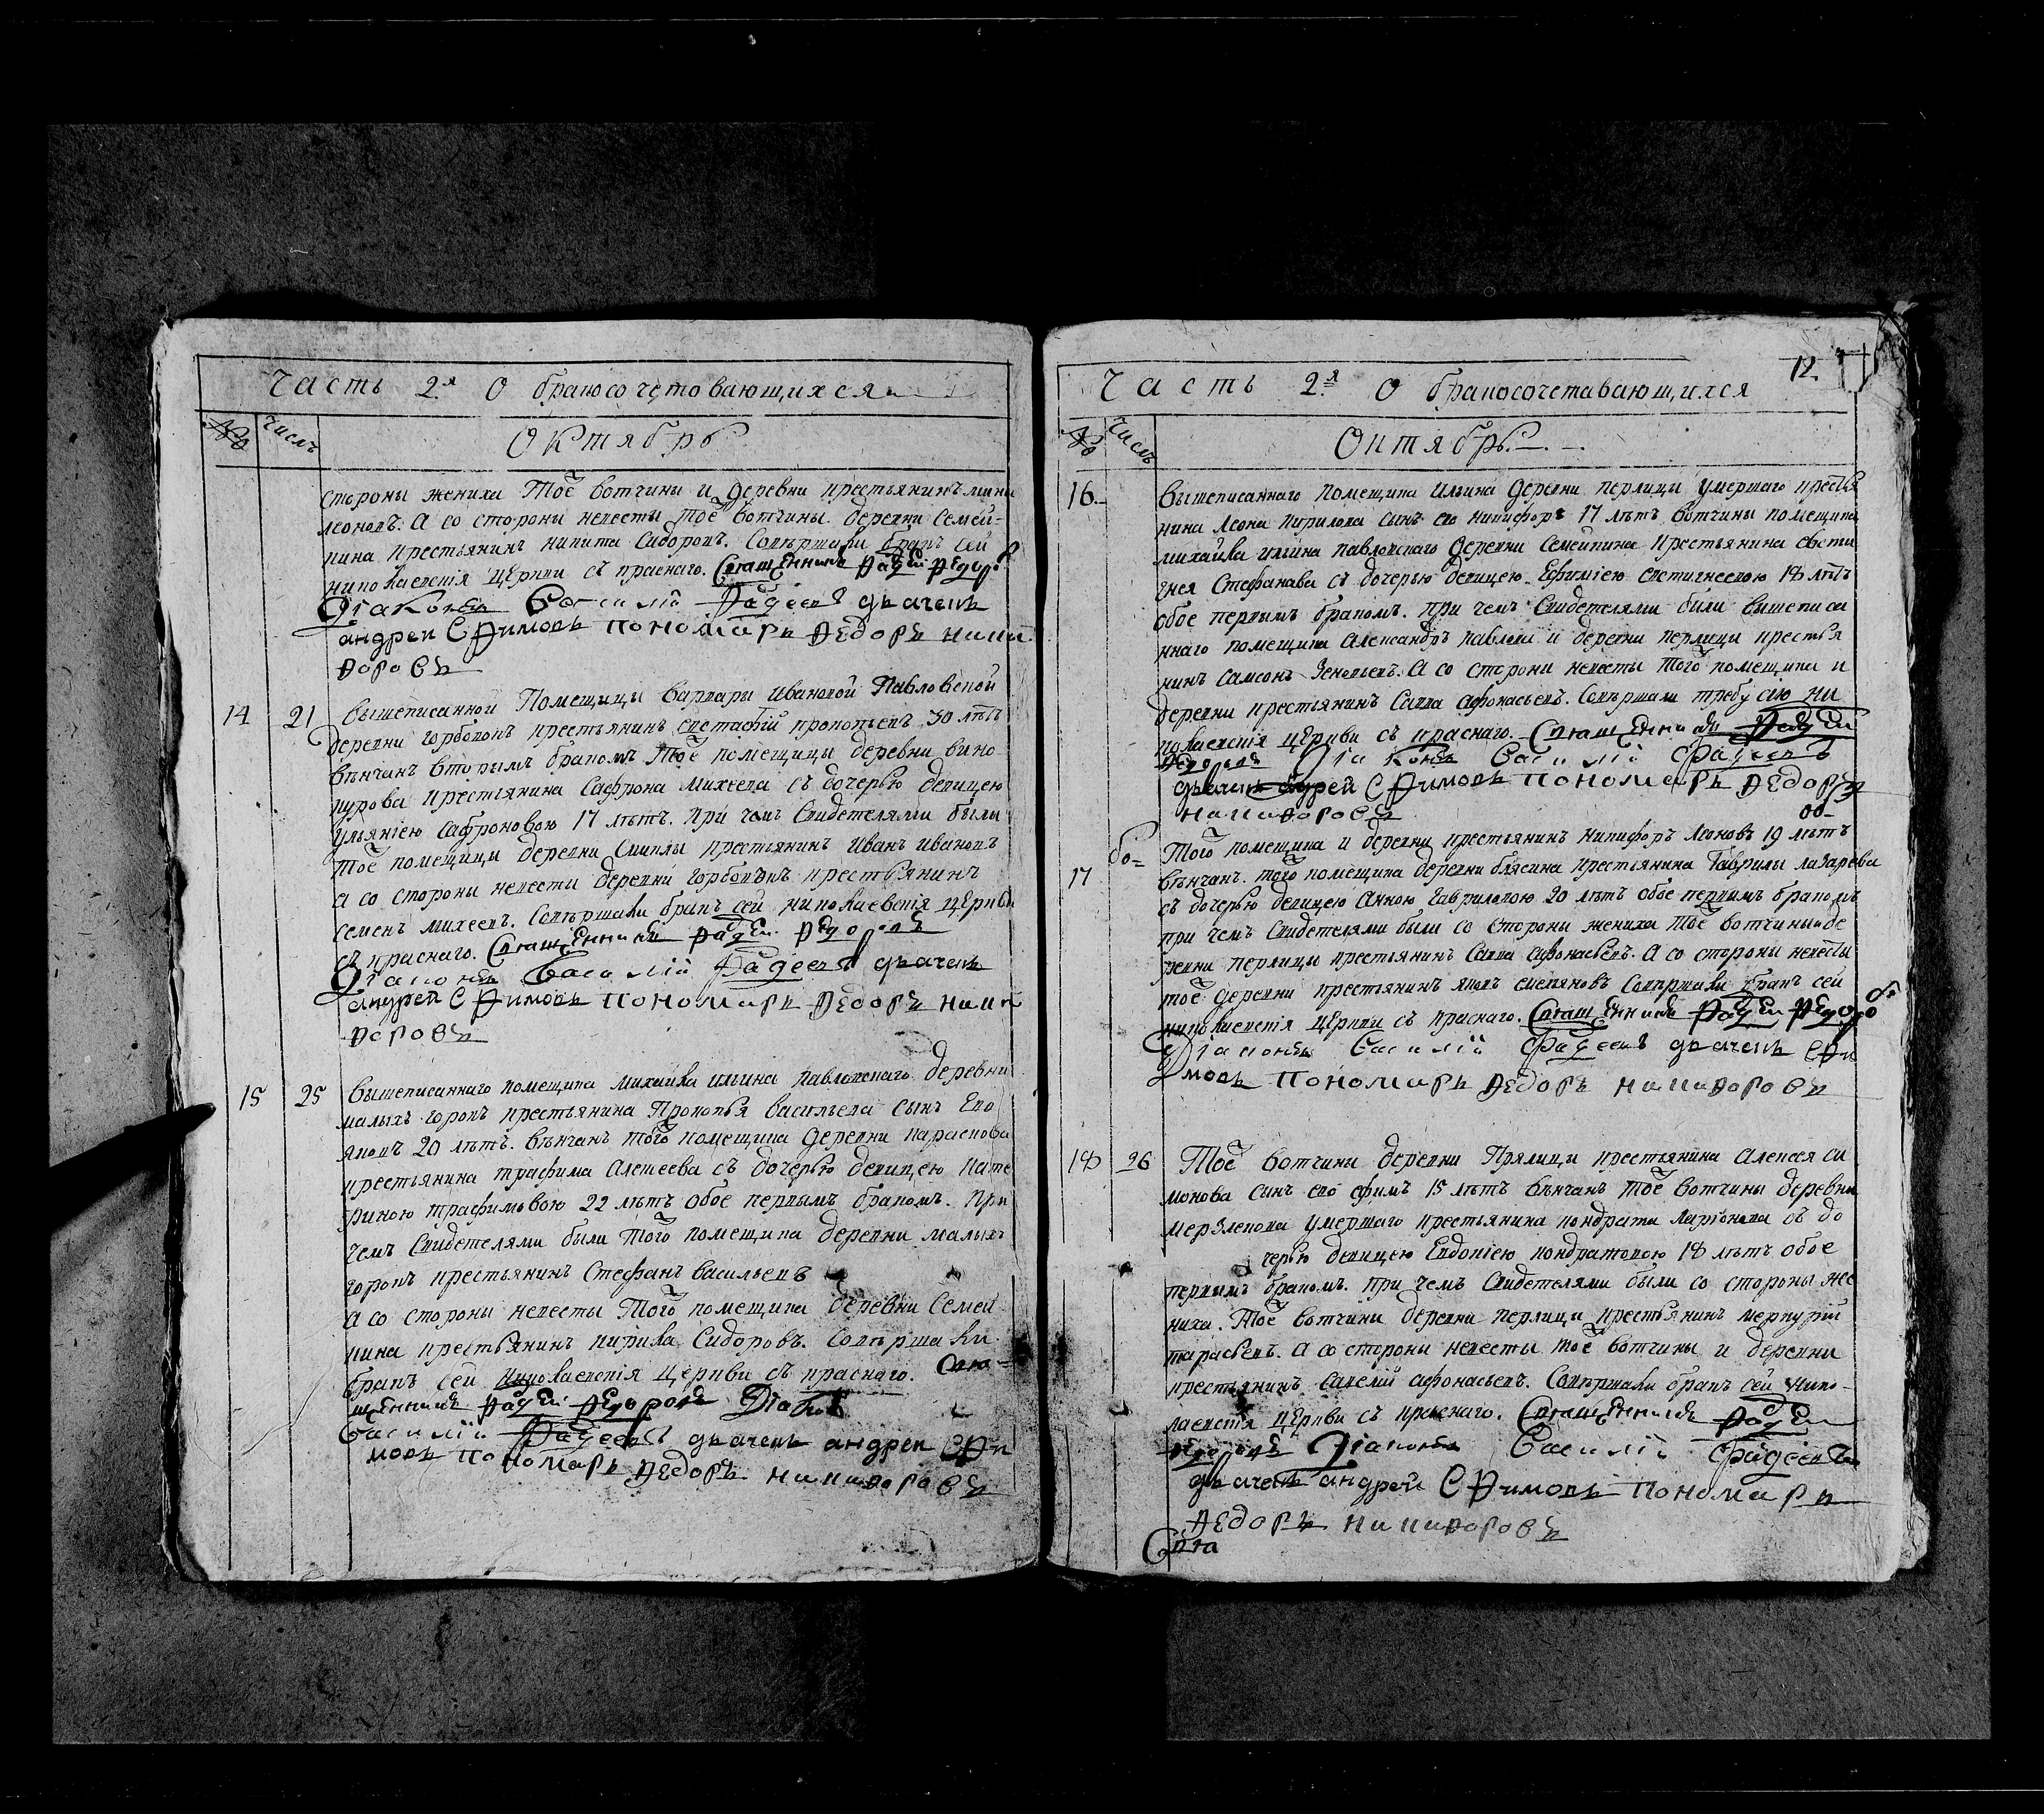 Часть 2я О бракосочетовающихся
№ числъ
Октябрь
стороны жениха Тоѣ вотчины и деревни крестьянинъ мина
леоновъ. А со стороны невесты тоѣ вотчины деревни Семей-
кина крестьянинъ никита Сидоровъ. Совѣршали бракъ сей
николаевскія цѣркви съ краснаго. Священникъ фадѣй федоровъ
Діаконъ Василій Фадеевъ дьячекъ
андреи ефимовъ пономарь федоръ ники
форовъ
14 21 вышеписанной Помещицы варвары ивановой Павловской
деревни горбовокъ крестьянинъ евстафій прокопьевъ 30 лѣтъ
вѣнчанъ вторымъ бракомъ Тоѣ помещицы деревни вино
курова крестьянина Сафрона михеева съ дочерью девицею
ульяніею сафроновою 17 лѣтъ. При чемъ Свидетелями были
Тоѣ помещицы деревни крестьянинъ иванъ ивановъ
а со стороны невести деревни горбовокъ крестьянинъ
семенъ михеевъ. Совѣршали бракъ сей николаевскія цѣркви
съ краснаго. Священникъ фадѣй федоровъ
Діаконъ Василій Фадеевъ дьячекъ
андрей ефимовъ пономарь федоръ ники
форовъ
15 25 вышеписаннаго помещика михайла ильина павловскаго деревни
малыхъ горокъ крестьянина Прокопья васильева сынъ Его
яковъ 20 лѣтъ. вѣнчанъ того помещика деревни караскова
крестьянина трафима Алексеева съ дочерью девицею кате
риною трафимовою 22 лѣтъ обое первымъ бракомъ. При
чемъ Свидетелями были того помещика деревни малыхъ
горокъ крестьянинъ Стефанъ васильевъ
А со стороны невесты Того помещика деревни Семей
кина крестьянинъ кирила Сидоровъ. Совѣршали
бракъ сей николаевскія цѣркви съ краснаго. Свя=
щенникъ фадѣй федоровъ Діаконъ
Василій Фадеевъ дьячекъ андреи ефи
мовъ пономарь федоръ никифоровъ
12.
Часть 2я О бракосочетавающихся
№ Числъ
Октябрь.
16 вышеписаннаго помещика ильина деревни перлицы умершаго крестья
нина леона кирилова сынъ его никифоръ 17 лѣтъ вотчины помещика
михайла ильина павловскаго деревни семейкина крестьянина евсти
гнея Стефанава съ дочерью девицею Ефиміею евстигнеевою 18 лѣтъ
обое первымъ бракомъ. при чемъ Свидетелями были вышеписа
ннаго помещика Александръ павловъ и деревни перлицы крестья
нинъ Самсонъ Зеновьевъ. А со стороны невесты того помещика и
деревни крестьянинъ Савва афонасьевъ. Совѣршали требу сію ни
колаевскія цѣркви съ краснаго. Священникъ фадѣй
федоровъ Діаконъ Василій Фадеевъ
дьячекъ андрей ефимовъ пономарь федоръ
никифоровъ
17 Того помещика и деревни крестьянинъ никифоръ леоновъ 19 лѣтъ
вѣнчанъ. того помещика деревни блясина крестьянина Гаврилы лазарева
съ дочерью девицею Анною гавриловою 20 лѣтъ обое первымъ бракомъ
при чемъ Свидетелями были со стороны жениха Тоѣ вотчины де
ревни перлицы крестьянинъ Савва афонасьевъ. А со стороны невесты
тоѣ деревни крестьянинъ яковъ Совѣршали бракъ сей
николаевскія цѣркви съ краснаго. Священникъ фадѣй федоро
Діаконъ Василій Фадеевъ дьячекъ ефи
мовъ пономарь федоръ никифоровъ
18 26 Тоѣ вотчины деревни Прялицы крестьянина Алексея си
монова сынъ его ефимъ 15 лѣтъ вѣнчанъ Тоѣ вотчины деревни
мерзлекова умершаго крестьянина кондрата ларіонова съ до
черью девицею Евдокіею кондратовою 18 лѣтъ обое
первымъ бракомъ. при чемъ Свидетелями были со стороны же
ниха. Тоѣ вотчины деревни перлицы крестьянинъ меркурій
тарасьевъ. А со стороны невесты тоѣ вотчины и деревни
крестьянинъ савелій афонасьевъ. Совѣршали бракъ сей нико-
лаевскія цѣркви съ краснаго. Священникъ фадѣй
федоровъ Діаконъ Василій Фадеевъ
дьячекъ андрей ефимовъ пономарь
федоръ никифоровъ
Свя